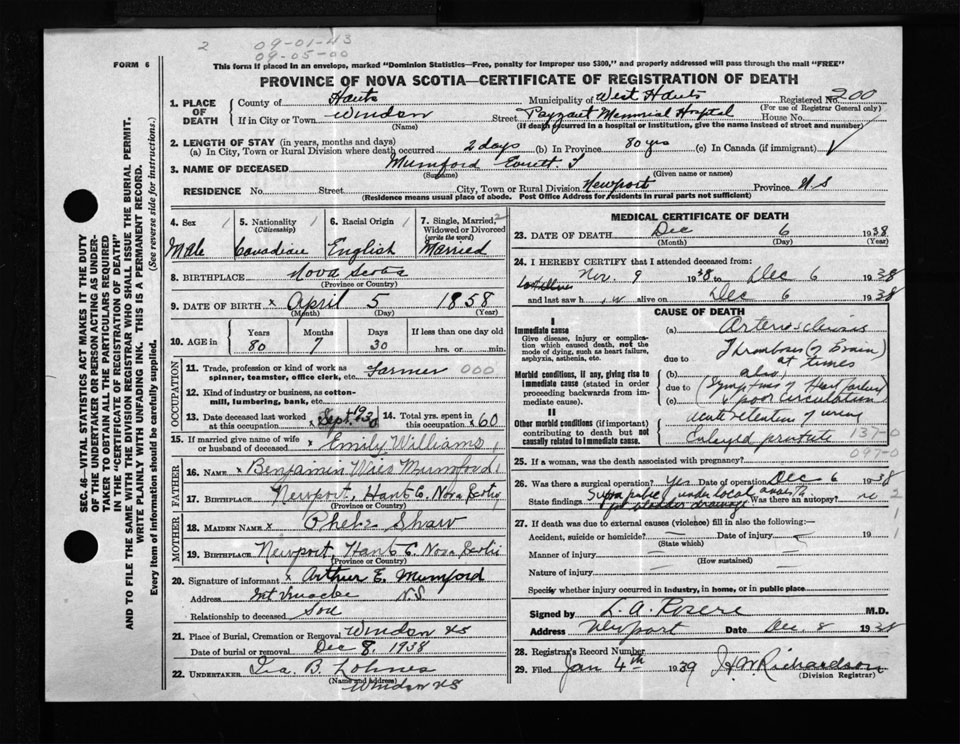 2 09-01-43
09-05-00
FORM 6
This form if placed in an envelope, marked "Dominion Statistics—Free, penalty for improper use $300," and properly addressed will pass through the mail "FREE"
PROVINCE OF NOVA SCOTIA—CERTIFICATE OF REGISTRATION OF DEATH
SEC. 46—VITAL STATISTICS ACT MAKES IT THE DUTY
OF THE UNDERTAKER OR PERSON ACTING AS UNDER-
TAKER TO OBTAIN ALL THE PARTICULARS REQUIRED
IN THE "CERTIFICATE OF REGISTRATION OF DEATH"
AND TO FILE THE SAME WITH THE DIVISION REGISTRAR WHO SHALL ISSUE THE BURIAL PERMIT.
WRITE PLAINLY WITH UNFADING INK. THIS IS A PERMANENT RECORD.
Every item of information should be carefully supplied. (See reverse side for instructions.)
1. PLACE OF DEATH
County of Hants Municipality of West Hants Registered No. 200
(For use of Registrar General only)
If in City or Town Windsor Street Payzant Memorial Hospital House No.
(Name) (If death occurred in a hospital or institution, give the name instead of street and number)
2. LENGTH OF STAY (in years, months and days)
(a) In City, Town or Rural Division where death occurred 2 days (b) In Province 80 yrs (c) In Canada (if immigrant)
3. NAME OF DECEASED Mumford Everett
(Surname) (Given name or names)
RESIDENCE No. Street City, Town or Rural Division Newport Province N.S
(Residence means usual place of abode. Post Office Address for residents in rural parts not sufficient)
4. Sex 1 Male
5. Nationality 1 (Citizenship) Canadian
6. Racial Origin 1 English
7. Single, Married, 2 Widowed or Divorced (write the word) Married
8. BIRTHPLACE Nova Scotia
(Province or Country)
9. DATE OF BIRTH x April 5 1858
(Month) (Day) (Year)
10. AGE in Years 80 Months 7 Days 30 If less than one day old hrs. or min.
OCCUPATION
11. Trade, profession or kind of work as spinner, teamster, office clerk, etc. Farmer 000
12. Kind of industry or business, as cotton-mill, lumbering, bank, etc.
13. Date deceased last worked at this occupation Sept. 14. Total yrs. spent in this occupation x 60
15. If married give name of wife or husband of deceased x Emily Williams
FATHER
16. NAME x Benjamin Mumford
17. BIRTHPLACE Newport, Hants C. Nova Scotia
(Province or Country)
MOTHER
18. MAIDEN NAME x Shaw
19. BIRTHPLACE Newport, Hants C. Nova Scotia
(Province or Country)
20. Signature of informant x Arthur E. Mumford
Address N.S
Relationship to deceased Son
21. Place of Burial, Cremation or Removal Windsor NS
Date of burial or removal Dec 8, 1938
22. UNDERTAKER Ira B. Lohnes
(Name and address) Windsor NS
MEDICAL CERTIFICATE OF DEATH
23. DATE OF DEATH Dec 6 1938
(Month) (Day) (Year)
24. I HEREBY CERTIFY that I attended deceased from:
Nov. 9 1938 to Dec 6 1938
and last saw h i m alive on Dec 6 1938
CAUSE OF DEATH
I
Immediate cause
Give disease, injury or complication which caused death, not the mode of dying, such as heart failure, asphyxia, asthenia, etc.
(a) Arteriosclerosis
due to Thrombosis of Brain at times
Morbid conditions, if any, giving rise to immediate cause (stated in order proceeding backwards from immediate cause).
(b) also
due to (Symptoms of Heart failure
(c) & poor circulation)
II
Other morbid conditions (if important) contributing to death but not causally related to immediate cause.
acute retention of urine
Enlarged prostate 137-0
097-0
25. If a woman, was the death associated with pregnancy?
26. Was there a surgical operation? Yes Date of operation Dec 6 1938
State findings Supra pubic under local for bladder drainage Was there an autopsy? no 2
27. If death was due to external causes (violence) fill in also the following:— 1
Accident, suicide or homicide? Date of injury 19 1
(State which)
Manner of injury
(How sustained)
Nature of injury
Specify whether injury occurred in industry, in home, or in public place
Signed by L. A. M.D.
Address Newport Date Dec. 8 1938
28. Registrar's Record Number
29. Filed Jan 4th 1939 H.W. Richardson
(Division Registrar)